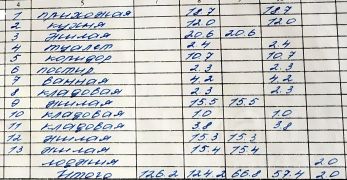 1 прихожая 18.7 18.7
2 кухня 12.0 12.0
3 жилая 20.6 20.6
4 туалет 2.4 2.4
5 коридор 10.7 10.7
6 постир 2.3 2.3
7 ванная 4.2 4.2
8 кладовая 2.3 2.3
9 жилая 15.5 15.5
10 кладовая 1.0 1.0
11 кладовая 3.8 3.8
12 жилая 15.3 15.3
13 жилая 15.4 15.4
лоджия 2.0
Итого 126.2 124.2 66.8 57.4 2.0